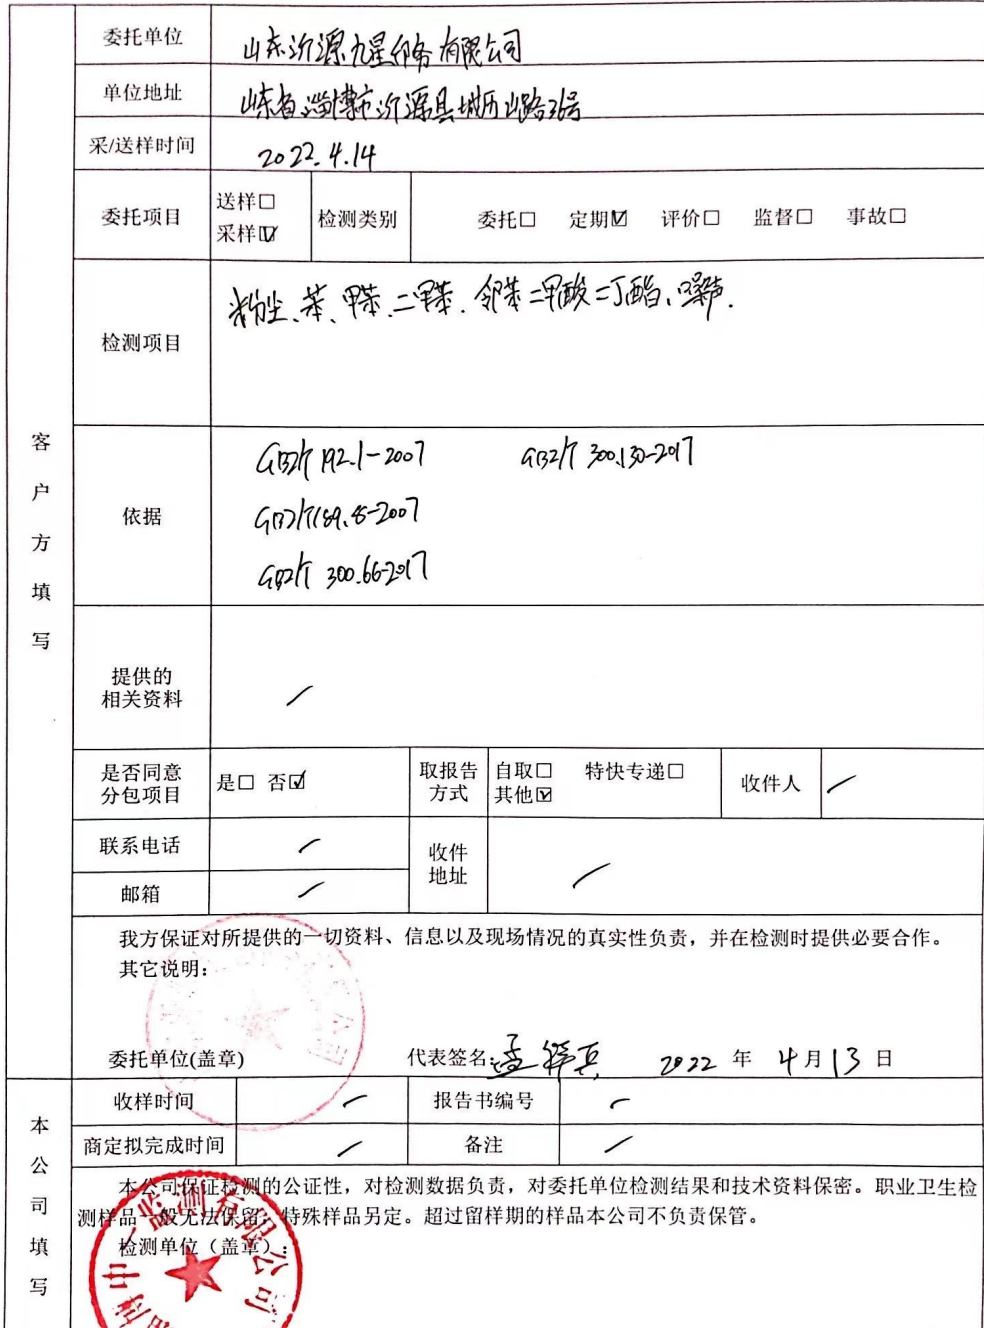 委托单位 山东沂源九星印务有限公司
单位地址 山东省淄博市沂源县城历山路36号
采/送样时间 2022.4.14
委托项目 送样□ 采样☑ 检测类别 委托□ 定期☑ 评价□ 监督□ 事故□
检测项目 粉尘、苯、甲苯、二甲苯、邻苯二甲酸二丁酯、噪声.
客户方填写
依据
GBZ/T 192.1-2007 GBZ/T 300.130-2017
GBZ/T189.8-2007
GBZ/T 300.66-2017
提供的
相关资料 /
是否同意
分包项目 是□ 否☑ 取报告
方式 自取□ 特快专递□
其他☑ 收件人 /
联系电话 / 收件
地址 /
邮箱 /
我方保证对所提供的一切资料、信息以及现场情况的真实性负责，并在检测时提供必要合作。
其它说明：
委托单位(盖章) 代表签名: 2022 年 4月13日
本公司填写
收样时间 / 报告书编号 /
商定拟完成时间 / 备注 /
本公司保证检测的公证性，对检测数据负责，对委托单位检测结果和技术资料保密。职业卫生检
测样品一般无法保留，特殊样品另定。超过留样期的样品本公司不负责保管。
检测单位（盖章）：
中一监测有限公司